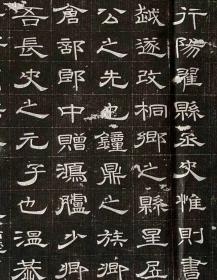 行陽翟縣丞史惟則書
越遂改桐鄉之縣星
公之先也鐘鼎之族
倉部郎中贈鴻臚少卿
吾長史之元子也溫恭